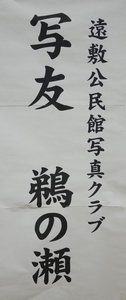 遠敷公民館写真クラブ
写友 鵜の瀬